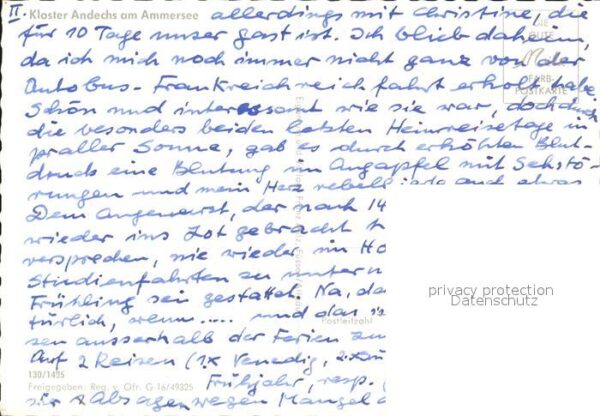 II. Kloster Andechs am Ammersee allerdings mit Christine, die
für 10 Tage unser Gast ist. Ich blieb daheim,
da ich mich noch immer nicht ganz von der
Autobus-Frankreichreich fahrt erholt habe
Schön und interessant wie sie war, doch durch
die besonders beiden letzten Heimreisetage in
praller Sonne, gab es durch erhöhten Blut-
drucks eine Blutung im Augapfel mit Sehstö-
rungen und mein Herz rebellierte auch etwas
Dem Augenarzt, der nach 14
wieder ins Lot gebracht
versprechen, nie wieder im
Studienfahrten zu
Frühling sei gestattet. Na, da
türlich, wenn .... und das
sen ausserhalb der Ferien zu
Auf 2 Reisen (1x Venedig, 2x
130/1435
Freigegeben: Reg. v. Ofr. G-16/49325 Frühjahr, resp.
für Absagen wegen Mangel
FARB-
POSTKARTE
Postleitzahl
privacy protection
Datenschutz